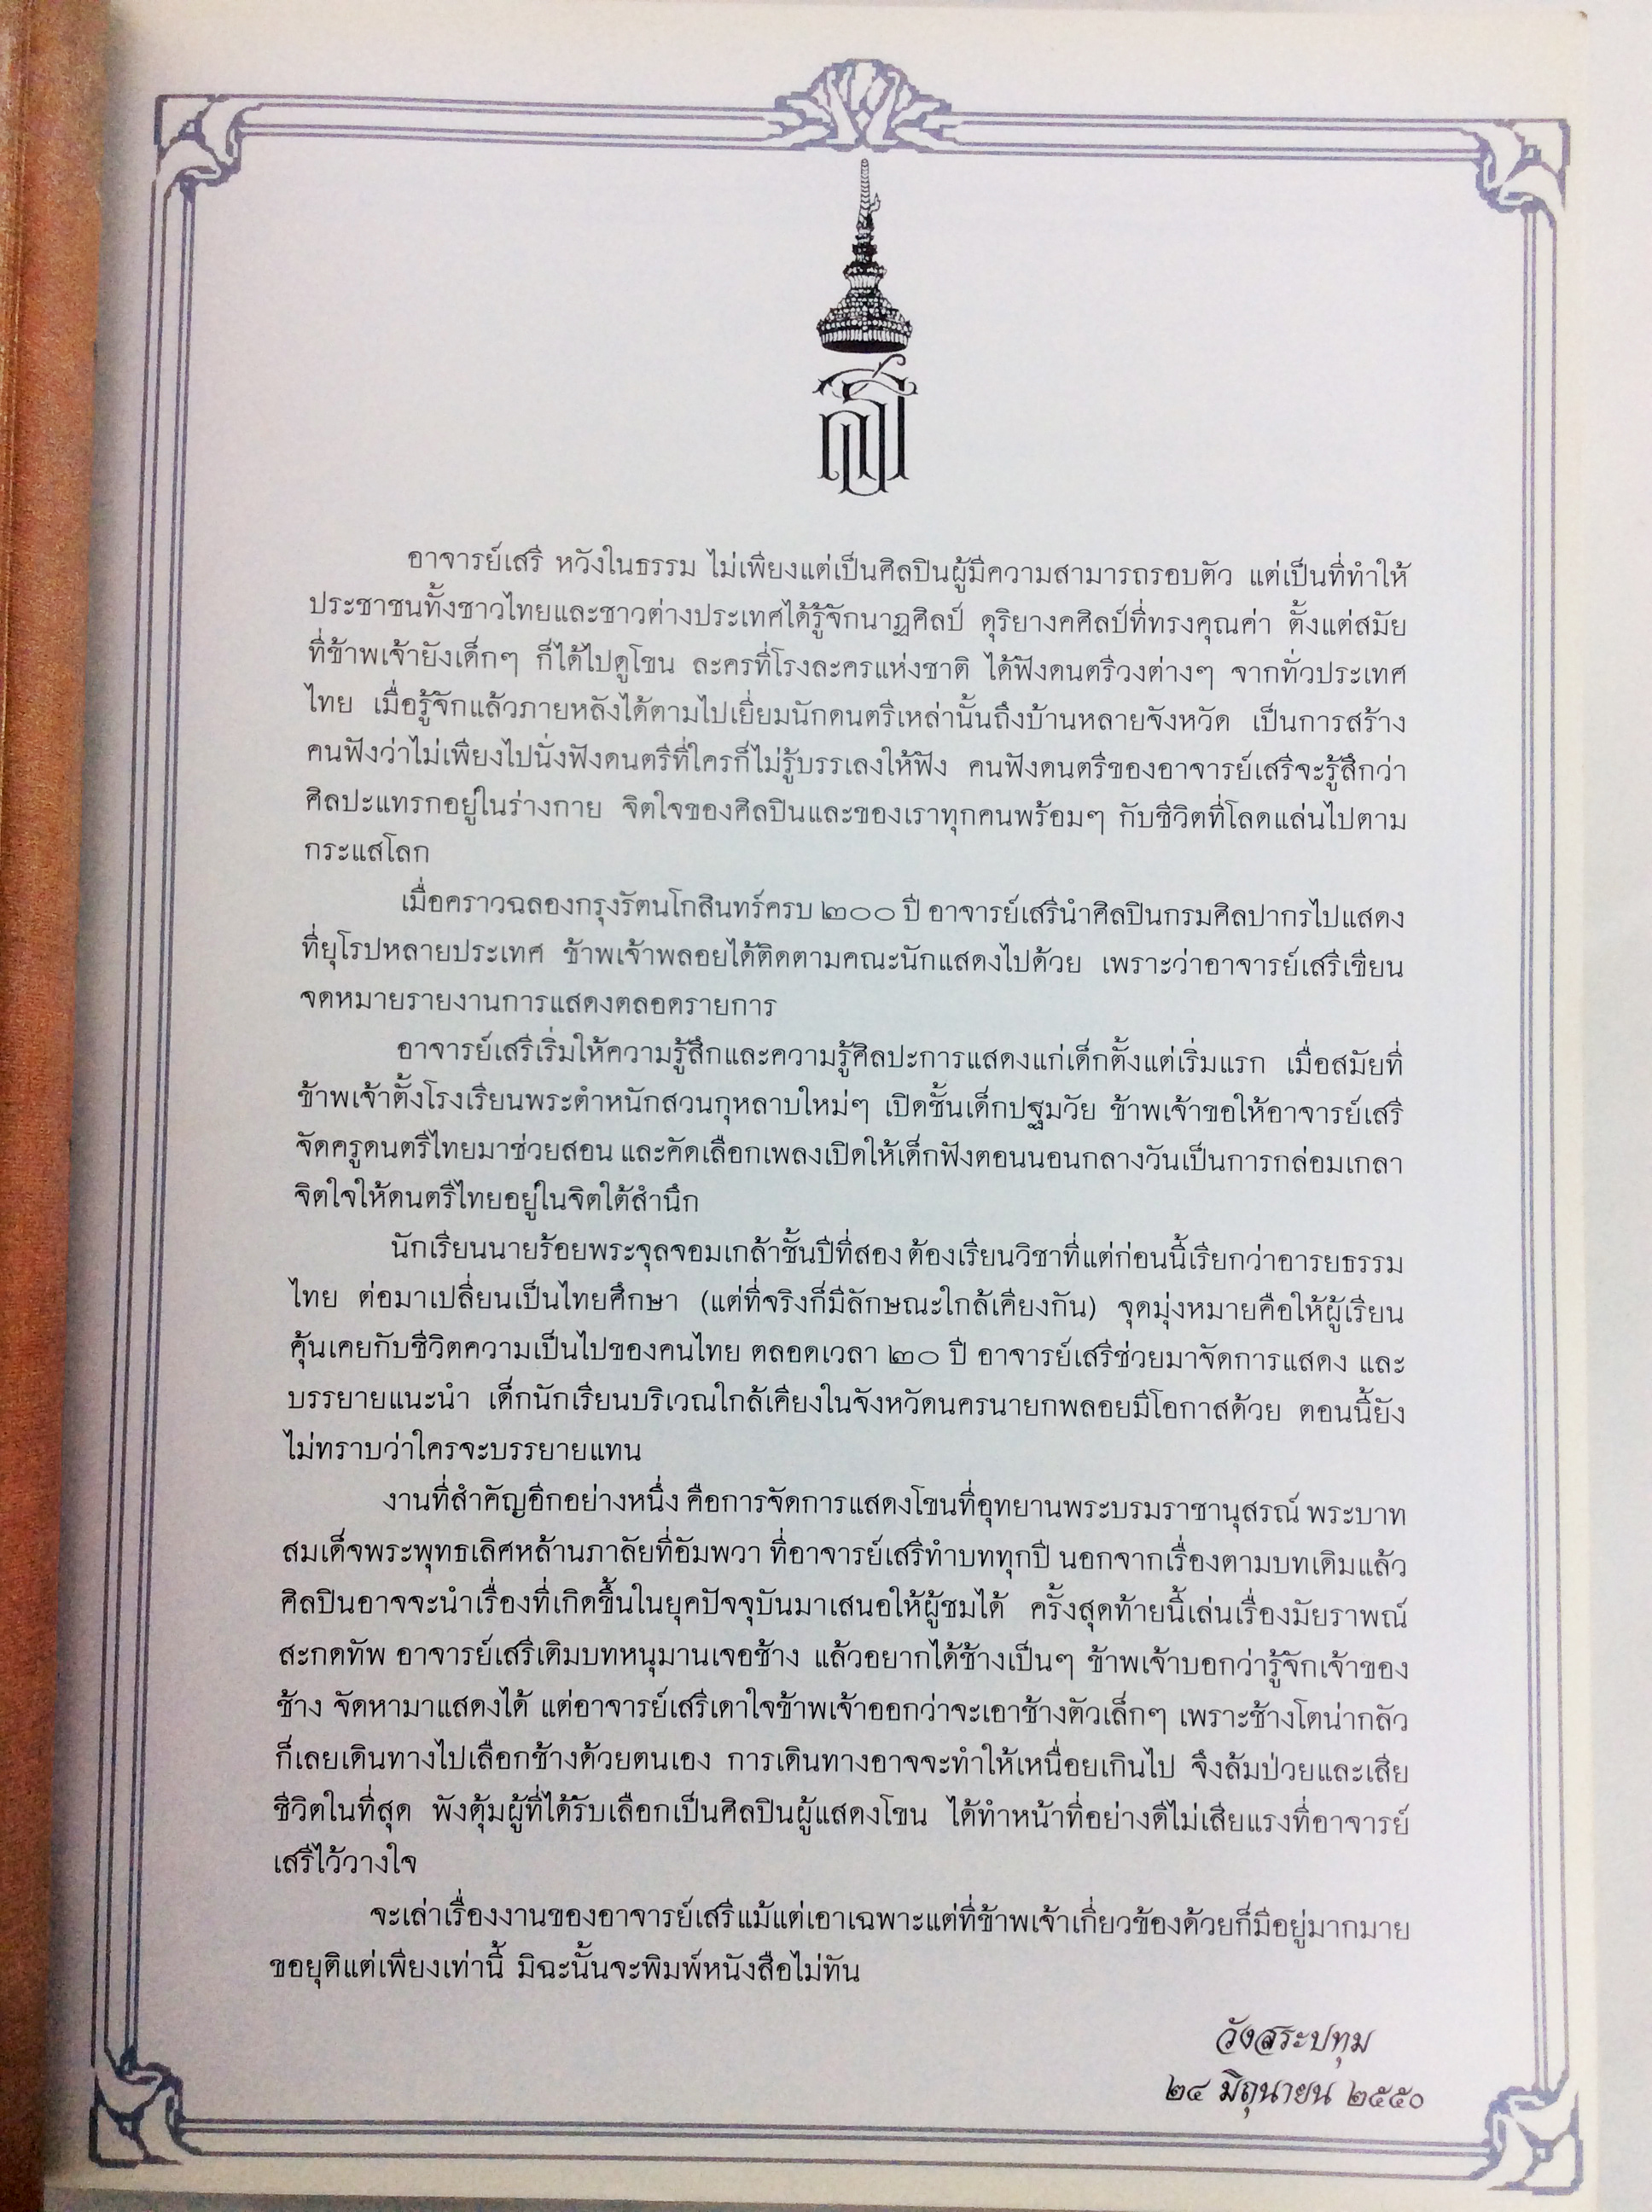 อาจารย์เสรี หวังในธรรม ไม่เพียงแต่เป็นศิลปินผู้มีความสามารถรอบตัว แต่เป็นที่ทำให้
ประชาชนทั้งชาวไทยและชาวต่างประเทศได้รู้จักนาฏศิลป์ ดุริยางคศิลป์ที่ทรงคุณค่า ตั้งแต่สมัย
ที่ข้าพเจ้ายังเด็กๆ ก็ได้ไปดูโขน ละครที่โรงละครแห่งชาติ ได้ฟังดนตรีวงต่างๆ จากทั่วประเทศ
ไทย เมื่อรู้จักแล้วภายหลังได้ตามไปเยี่ยมนักดนตรีเหล่านั้นถึงบ้านหลายจังหวัด เป็นการสร้าง
คนฟังว่าไม่เพียงไปนั่งฟังดนตรีที่ใครก็ไม่รู้บรรเลงให้ฟัง คนฟังดนตรีของอาจารย์เสรีจะรู้สึกว่า
ศิลปะแทรกอยู่ในร่างกาย จิตใจของศิลปินและของเราทุกคนพร้อมๆ กับชีวิตที่โลดแล่นไปตาม
กระแสโลก
เมื่อคราวฉลองกรุงรัตนโกสินทร์ครบ ๒๐๐ ปี อาจารย์เสรีนำศิลปินกรมศิลปากรไปแสดง
ที่ยุโรปหลายประเทศ ข้าพเจ้าพลอยได้ติดตามคณะนักแสดงไปด้วย เพราะว่าอาจารย์เสรีเขียน
จดหมายรายงานการแสดงตลอดรายการ
อาจารย์เสรีเริ่มให้ความรู้สึกและความรู้ศิลปะการแสดงแก่เด็กตั้งแต่เริ่มแรก เมื่อสมัยที่
ข้าพเจ้าตั้งโรงเรียนพระตำหนักสวนกุหลาบใหม่ๆ เปิดชั้นเด็กปฐมวัย ข้าพเจ้าขอให้อาจารย์เสรี
จัดครูดนตรีไทยมาช่วยสอน และคัดเลือกเพลงเปิดให้เด็กฟังตอนนอนกลางวันเป็นการกล่อมเกลา
จิตใจให้ดนตรีไทยอยู่ในจิตใต้สำนึก
นักเรียนนายร้อยพระจุลจอมเกล้าชั้นปีที่สอง ต้องเรียนวิชาที่แต่ก่อนนี้เรียกว่าอารยธรรม
ไทย ต่อมาเปลี่ยนเป็นไทยศึกษา (แต่ที่จริงก็มีลักษณะใกล้เคียงกัน) จุดมุ่งหมายคือให้ผู้เรียน
คุ้นเคยกับชีวิตความเป็นไปของคนไทย ตลอดเวลา ๒๐ ปี อาจารย์เสรีช่วยมาจัดการแสดง และ
บรรยายแนะนำ เด็กนักเรียนบริเวณใกล้เคียงในจังหวัดนครนายกพลอยมีโอกาสด้วย ตอนนี้ยัง
ไม่ทราบว่าใครจะบรรยายแทน
งานที่สำคัญอีกอย่างหนึ่ง คือการจัดการแสดงโขนที่อุทยานพระบรมราชานุสรณ์ พระบาท
สมเด็จพระพุทธเลิศหล้านภาลัยที่อัมพวา ที่อาจารย์เสรีทำบททุกปี นอกจากเรื่องตามบทเดิมแล้ว
ศิลปินอาจจะนำเรื่องที่เกิดขึ้นในยุคปัจจุบันมาเสนอให้ผู้ชมได้ ครั้งสุดท้ายนี้เล่นเรื่องมัยราพณ์
สะกดทัพ อาจารย์เสรีเติมบทหนุมานเจอช้าง แล้วอยากได้ช้างเป็นๆ ข้าพเจ้าบอกว่ารู้จักเจ้าของ
ช้าง จัดหามาแสดงได้ แต่อาจารย์เสรีเดาใจข้าพเจ้าออกว่าจะเอาช้างตัวเล็กๆ เพราะช้างโตน่ากลัว
ก็เลยเดินทางไปเลือกช้างด้วยตนเอง การเดินทางอาจจะทำให้เหนื่อยเกินไป จึงล้มป่วยและเสีย
ชีวิตในที่สุด พังตุ้มผู้ที่ได้รับเลือกเป็นศิลปินผู้แสดงโขน ได้ทำหน้าที่อย่างดีไม่เสียแรงที่อาจารย์
เสรีไว้วางใจ
จะเล่าเรื่องงานของอาจารย์เสรีแม้แต่เอาเฉพาะแต่ที่ข้าพเจ้าเกี่ยวข้องด้วยก็มีอยู่มากมาย
ขอยุติแต่เพียงเท่านี้ มิฉะนั้นจะพิมพ์หนังสือไม่ทัน
วังสระปทุม
๒๔ มิถุนายน ๒๕๕๐